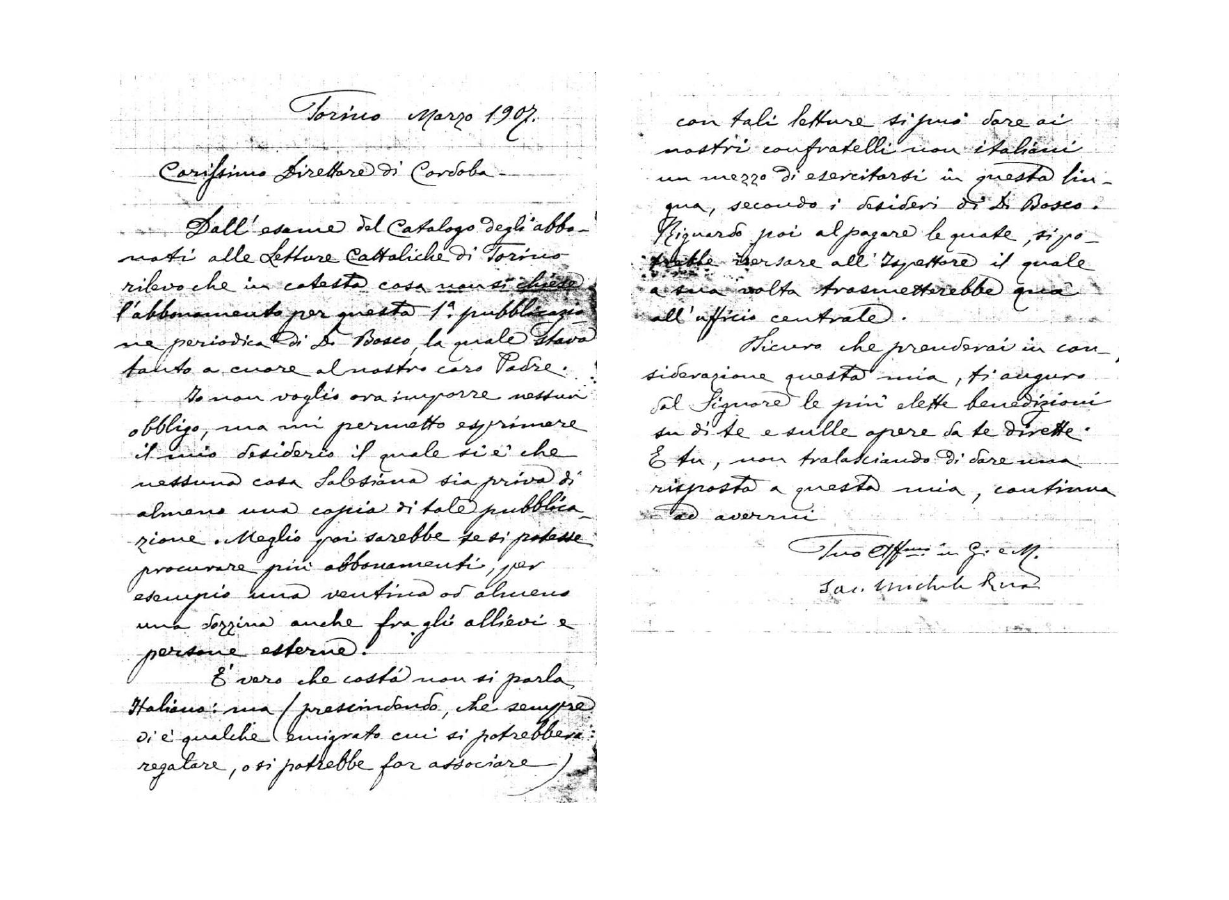 Torino Marzo 1907.
Carissimo Direttore di Cordoba -
Dall' esame del Catalogo degli abbo-
nati alle Letture Cattoliche di Torino
rilevo che in cotesta casa non si chiese
l'abbonamento per questa 1ª. pubblicazio
ne periodica di D. Bosco, la quale stava
tanto a cuore al nostro caro Padre.
Io non voglio ora imporre nessun
obbligo, ma mi permetto esprimere
il mio desiderio il quale si è che
nessuna casa Salesiana sia priva di
almeno una copia di tale pubblica-
zione. Meglio poi sarebbe se si potesse
procurare più abbonamenti, per
esempio una ventina od almeno
una dozzina anche fra gli allievi e
persone esterne.
È vero che costà non si parla
Italiano: ma (prescindendo, che sempre
vi è qualche emigrato cui si potrebbero
regalare, o si potrebbe far associare)
con tali letture si può dare ai
nostri confratelli non italiani
un mezzo di esercitarsi in questa lin-
gua, secondo i desideri di D. Bosco.
Riguardo poi al pagare le quote, si po-
trebbe versare all' Ispettore il quale
a sua volta trasmetterebbe quà
all' ufficio centrale.
Sicuro che prenderai in con-
siderazione questa mia, ti auguro
dal Signore le più elette benedizioni
su di te e sulle opere da te dirette.
E tu, non tralasciando di dare una
risposta a questa mia, continua
ad avermi
Tuo Affmo in G. e M.
Sac. Michele Rua